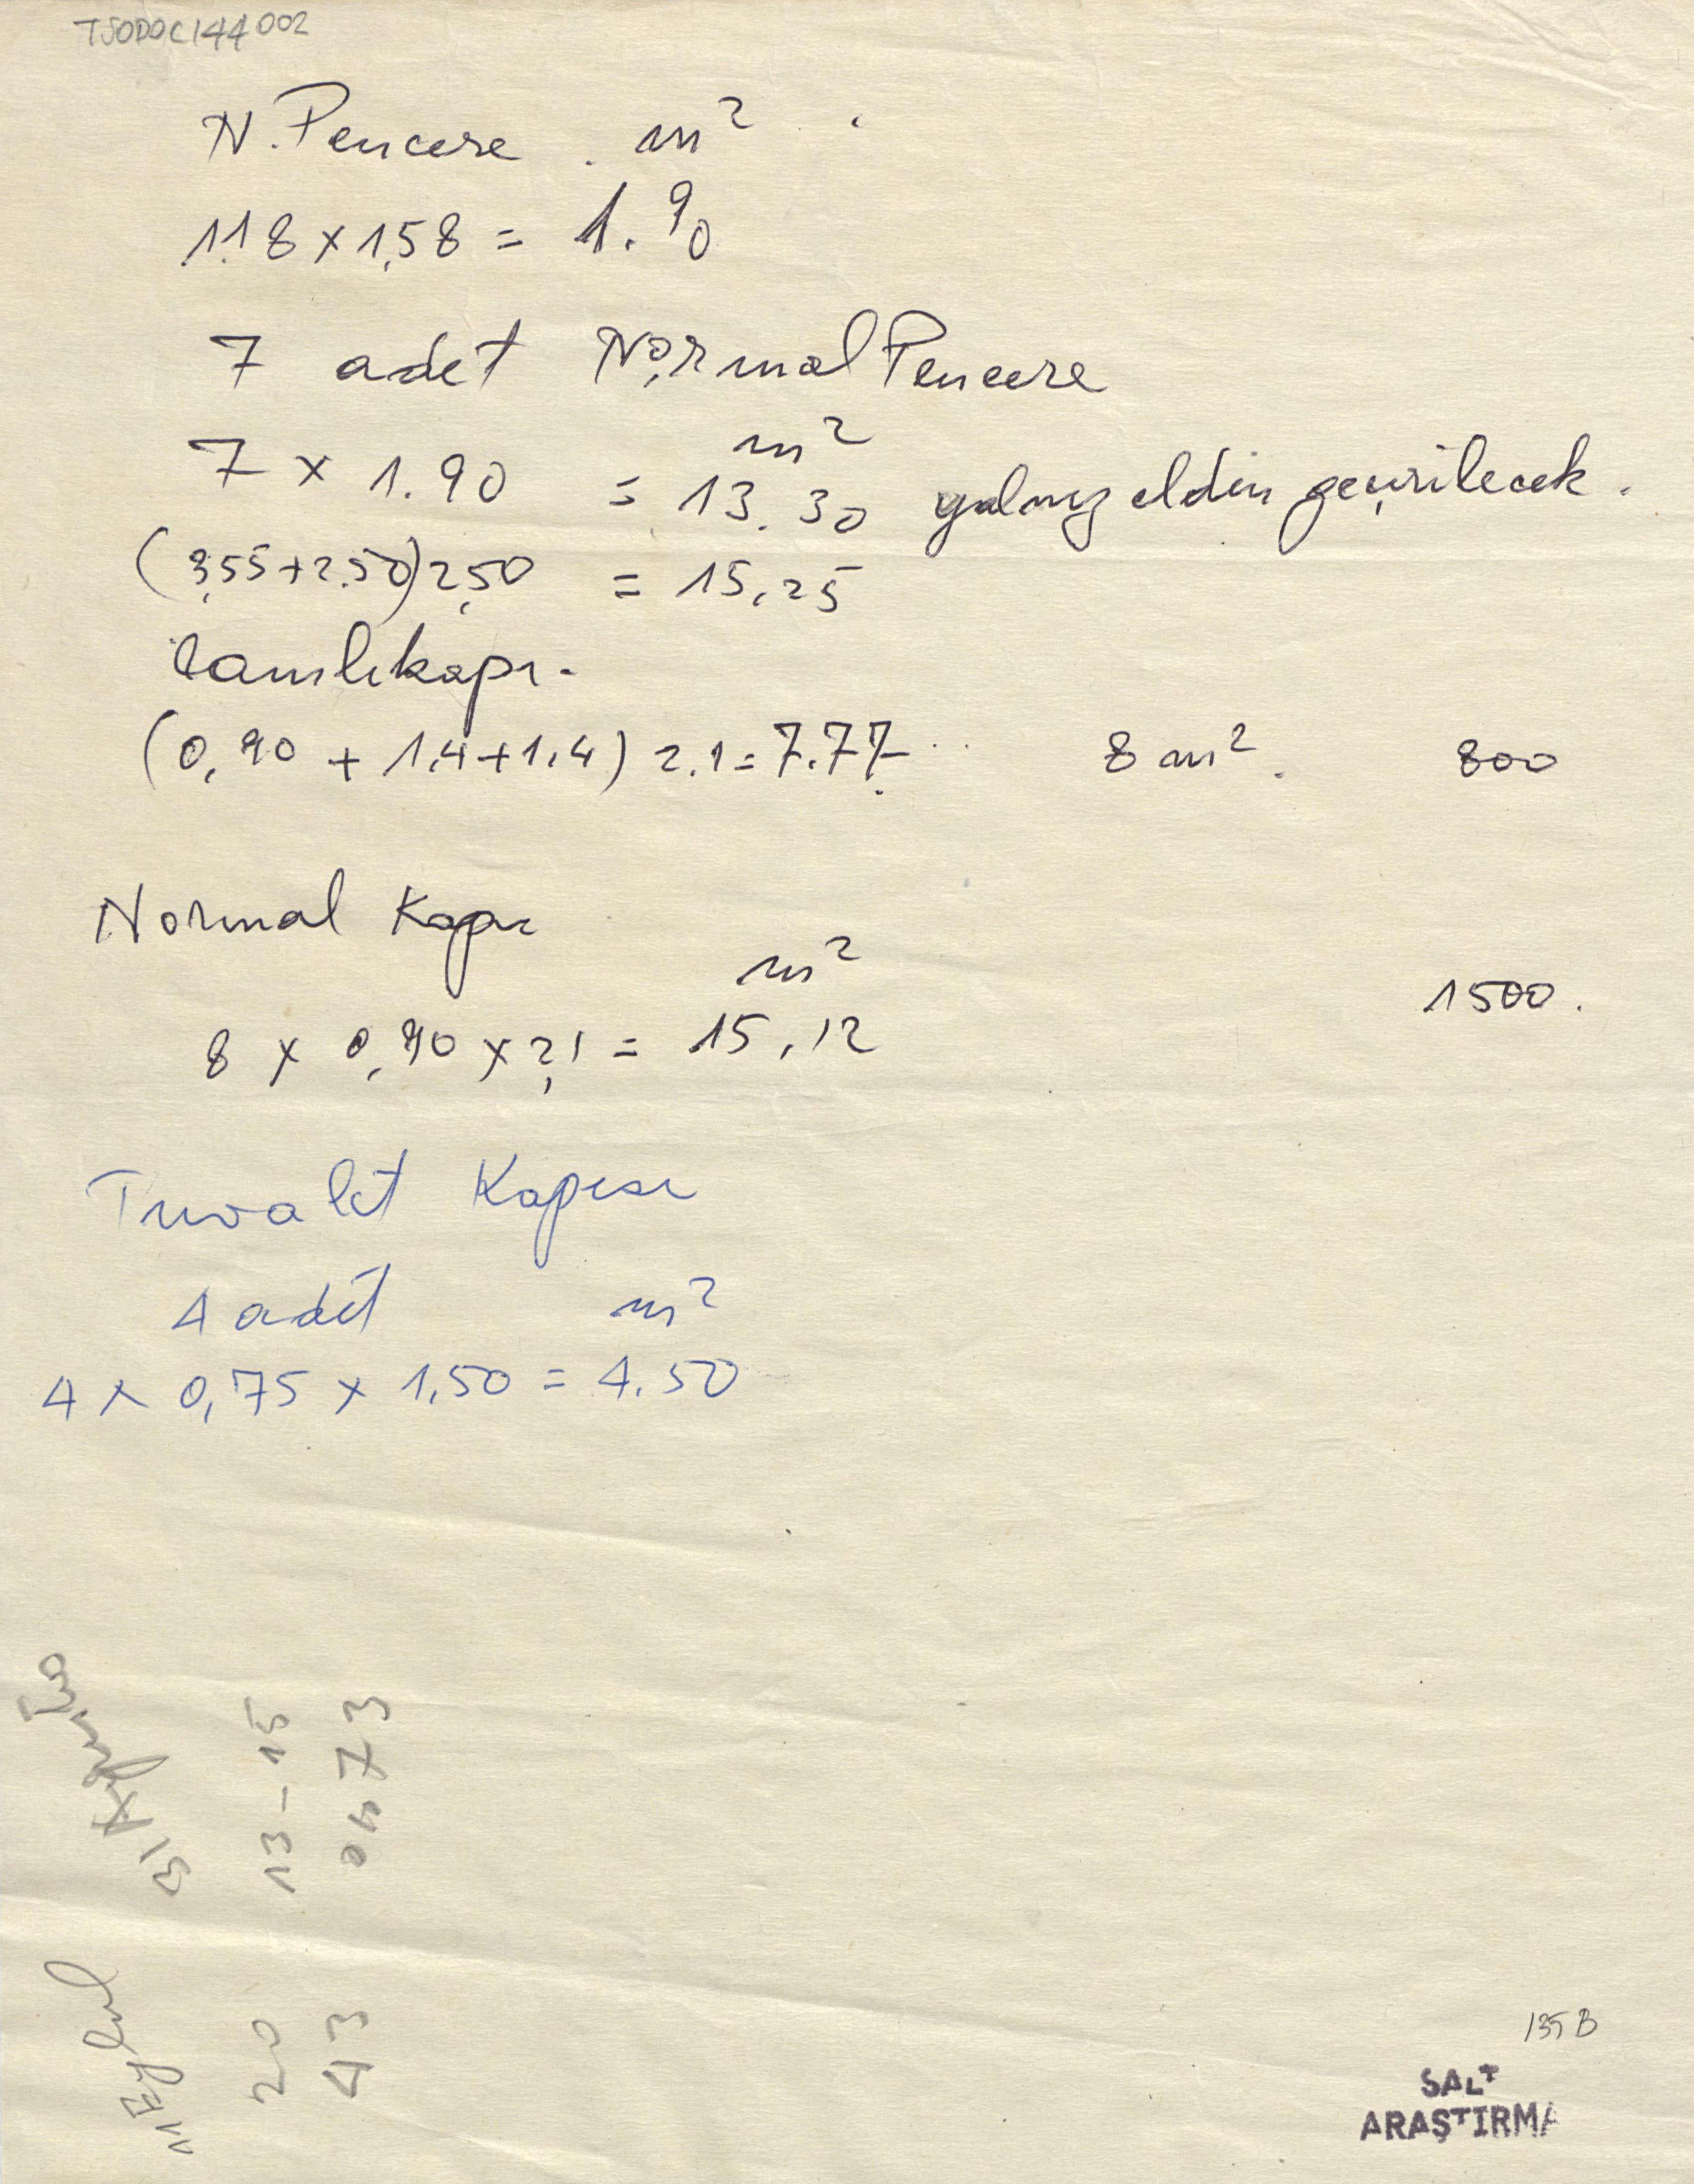 TSODOC144002
N. Pencere m²
1.18 x 1,58 = 1.90
7 adet Normal Pencere
m²
7 x 1.90 = 13.30 yalnız elden geçirilecek.
(3,55+2.50)2,50 = 15,25
Camlıkapı.
(0,90 + 1,4+1.4) 2.1=7.77 8 m². 800
Normal Kapı
m²
1500.
8 x 0,90 x 2,1 = 15,12
Tuvalet Kapısı
4 adet m²
4 x 0,75 x 1,50 = 4.50
31
13-15
73
11 Eylul
20
43
135 B
SALT
ARAŞTIRMA